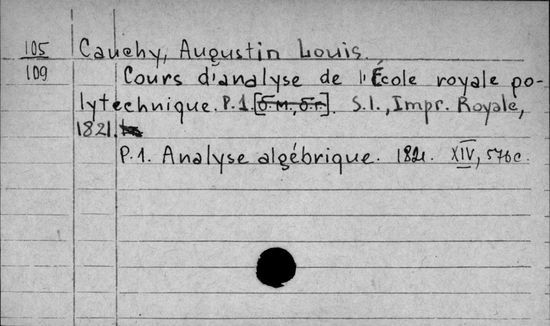 105 Cauchy, Augustin Louis.
109 Cours d'analyse de l'École royale po-
lytechnique. P.1. [б.м., б.г.] S.l., Impr. Royale,
1821.
P.1. Analyse algébrique. 1821. XIV, 576 c.